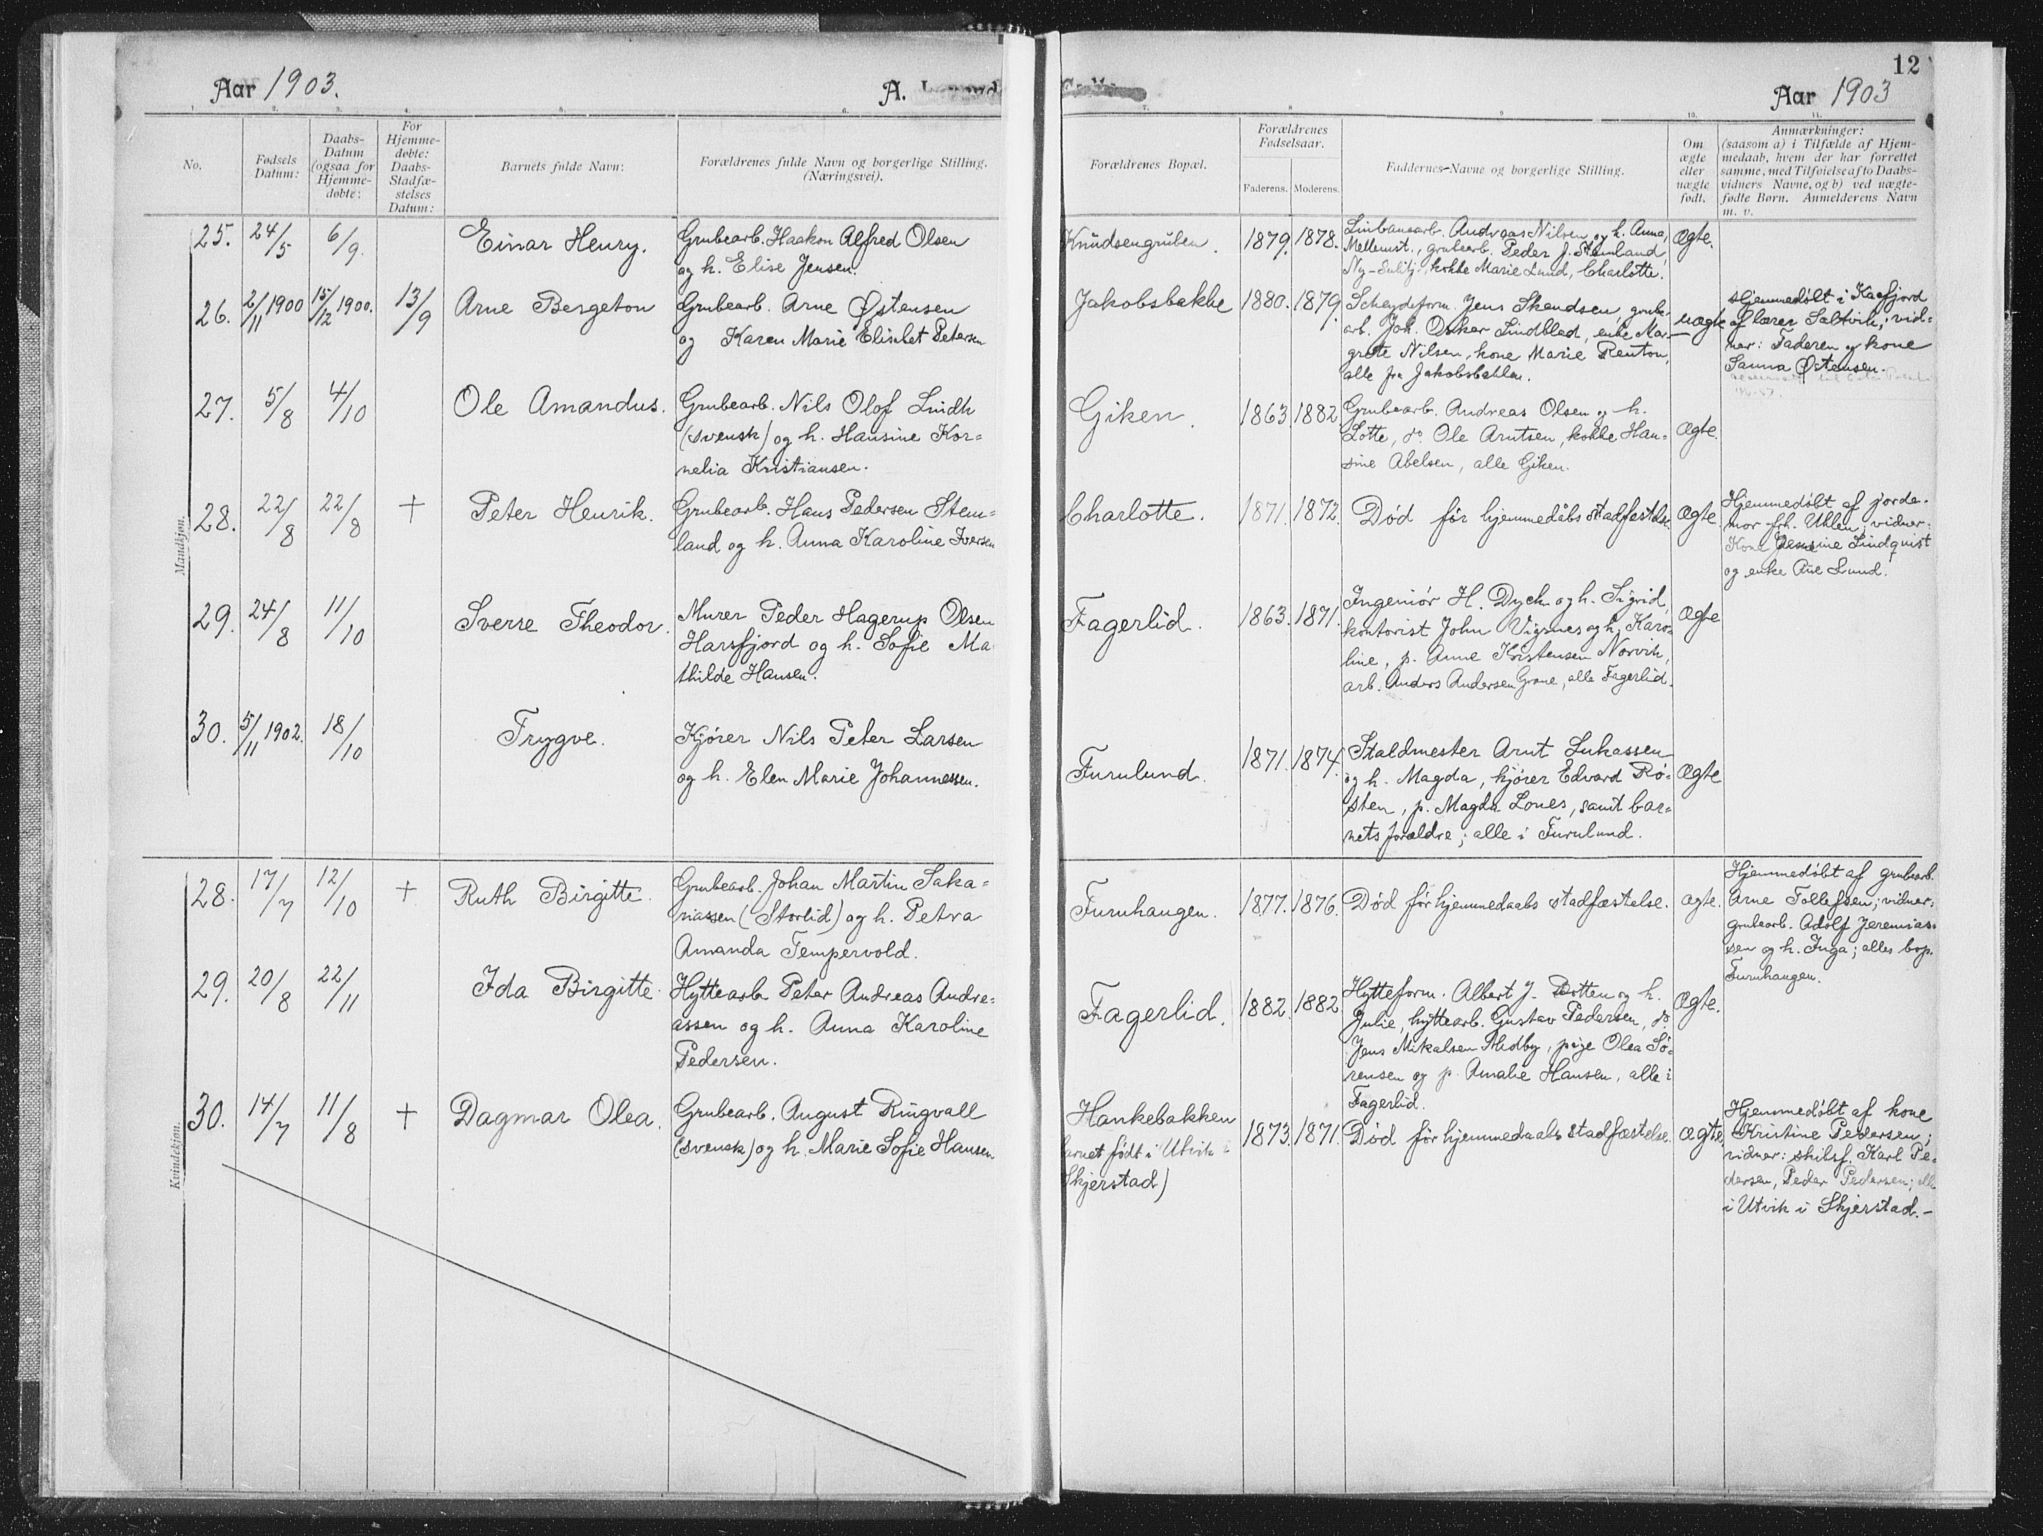 12
Aar 1903.
A.
Aar 1903
1. 2. 3. 4. 5. 6. 7. 8 9 10. 11.
No.
Fødsels Datum:
Daabs-Datum (ogsaa for Hjemmedøbte:
For Hjemme-døbte: Daabs-Stadfæ-stelses Datum:
Barnets fulde Navn:
Forældrenes fulde Navn og borgerlige Stilling. (Næringsvei).
Forældrenes Bopæl.
Forældrenes Fødselsaar.
Faderens. Moderens.
Faddernes Navne og borgerlige Stilling.
Om ægte eller uægte født.
Anmærkninger:
(saasom a) i Tilfælde af Hjem-
medaab, hvem der har forrettet
samme, med Tilføielse af to Daabs-
vidners Navne, og b) ved uægte-
fødte Børn. Anmelderens Navn
m. v.
Mandkjøn.
25. 24/5 6/9. Einar Henry.
Grubearb. Haakon Alfred Olsen
og h. Elise Jensen.
Knudsengruben. 1879. 1878.
Linbanearb. Andreas Nilsen og h. Anna,
Mellemst., grubearb. Peder J. Stemland,
Ny-Sulitj., kokke Marie Lund, Charlotte.
Ægte.
26. 2/11 1900 15/12 1900. 13/9 Arne Bergeton
Grubearb. Arne Østensen
og Karen Marie Elisabet Petersen
Jakobsbakke 1880. 1879.
Scheydeform. Jens Skandsen, grube-
arb. Joh. Oskar Lindblad, enke Mar-
grete Nilsen, kone Marie Renton,
alle fra Jakobsbakken.
uægte
Hjemmedøbt i Kaafjord
af lærer Saltvik; vid-
ner: Faderen og kone
Sanna Østensen.
27. 5/8 4/10 Ole Amandus.
Grubearb. Nils Olof Lindh
(svensk) og h. Hansine Kor-
nelia Kristiansen.
Giken. 1863 1882
Grubearb. Andreas Olsen og h.
Lotte, do. Ole Arntsen, kokke Han-
sine Abelsen, alle Giken.
Ægte.
28. 22/8 22/8 † Peter Henrik.
Grubearb. Hans Pedersen Stem-
land og h. Anna Karoline Iversen
Charlotte. 1871. 1872.
Død før hjemmedåbs stadfæstelse.
Ægte.
Hjemmedøbt af jorde-
mor frk. Uhlen; vidner:
Kone Jensine Lindquist
og enke Ane Lund.
29. 24/8 11/10 Sverre Theodor.
Murer Peder Hagerup Olsen
Harsfjord og h. Sofie Ma
thilde Hansen.
Fagerlid. 1863. 1871.
Ingeniør H. Dyck og h. Sigrid,
kontorist John Vigsnes og h. Karo-
line, p. Anne Kristensen Norvik,
arb. Anders Andersen Grane, alle Fagerlid.
Ægte
30. 5/11 1902. 18/10 Trygve.
Kjører Nils Peter Larsen
og h. Elen Marie Johannessen.
Furulund. 1871. 1874.
Staldmester Arnt Lukassen
og h. Magda, kjører Edvard Rø-
sten, p. Magda Lones, samt bar-
nets forældre; alle i Furulund.
Ægte
Kvindekjøn.
28. 17/7 12/10 † Ruth Birgitte.
Grubearb. Johan Martin Saka-
riassen (Storlid) og h. Petra
Amanda Tempervold.
Furuhaugen. 1877. 1876.
Død før hjemmedaabs stadfæstelse.
Ægte.
Hjemmedøbt af grubearb.
Arne Tollefsen; vidner:
grubearb. Adolf Jeremias-
sen og h. Inga; alles bop.
Furuhaugen.
29. 20/8 22/11 Ida Birgitte.
Hyttearb. Peter Andreas Andre-
assen og h. Anna Karoline
Pedersen.
Fagerlid. 1882. 1882
Hytteform. Albert J. Dotten og h.
Julie, hyttearb. Gustav Pedersen, do.
Jens Mikalsen Medby, pige Olea Sø-
rensen og p. Amalie Hansen, alle i
Fagerlid.
Ægte.
30. 14/7 11/8 † Dagmar Olea.
Grubearb. August Ringvall
(svensk) og h. Marie Sofie Hansen.
Hankebakken
barnet født i Utvik i
Skjerstad)
1873. 1871.
Død før hjemmedaabs stadfæstelse.
Ægte
Hjemmedøbt af kone
Kristine Pedersen;
vidner: skilsf. Karl Pe-
dersen, Peder Pedersen; alle
i Utvik i Skjerstad.-